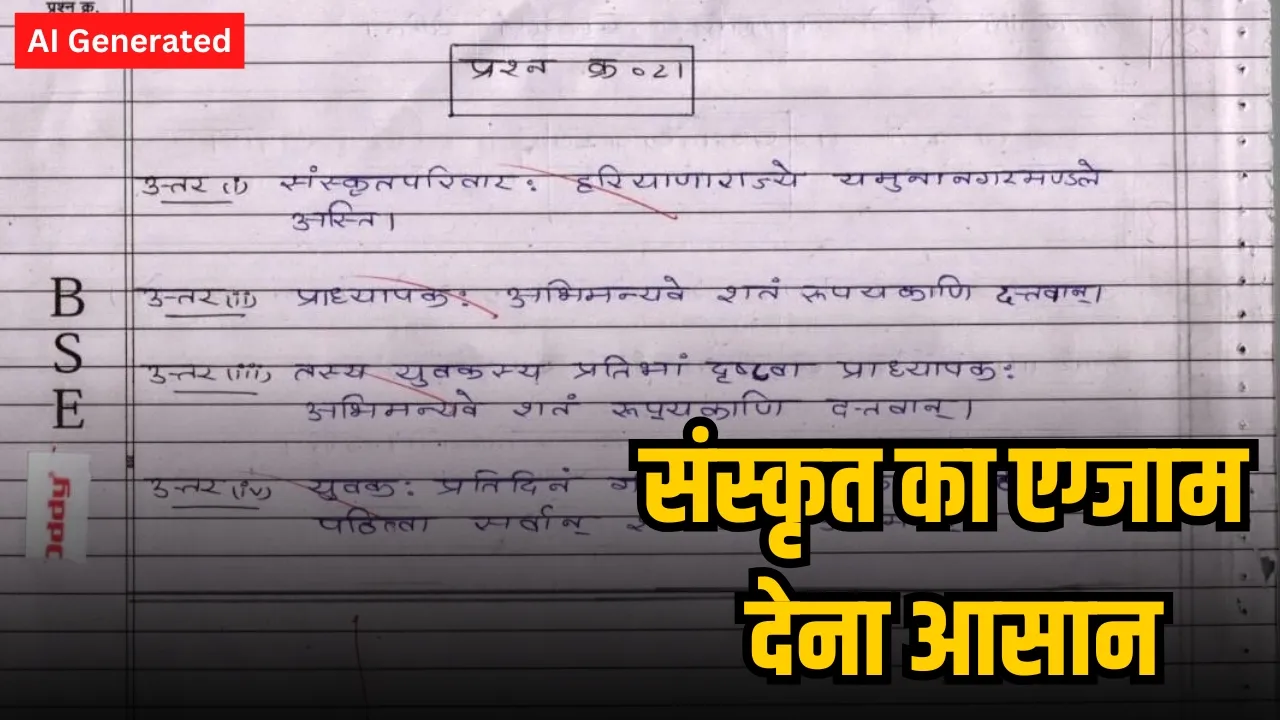 प्रश्न क्र.
AI Generated
प्रश्न क्र ० 21
उत्तर (i) संस्कृतपरिवार: हरियाणाराज्ये यमुनानगरमण्डले
अस्ति।
उत्तर (ii) प्राध्यापक: अभिमन्यवे शतं रूपयकाणि दत्तवान्।
उत्तर (iii) तस्य युवकस्य प्रतिभां दृष्टवा प्राध्यापक:
अभिमन्यवे शतं रूप्यकाणि दत्तवान्।
उत्तर (iv) युवक: प्रतिदिनं
पठित्वा सर्वान्
B
S
E
oddy
संस्कृत का एग्जाम
देना आसान